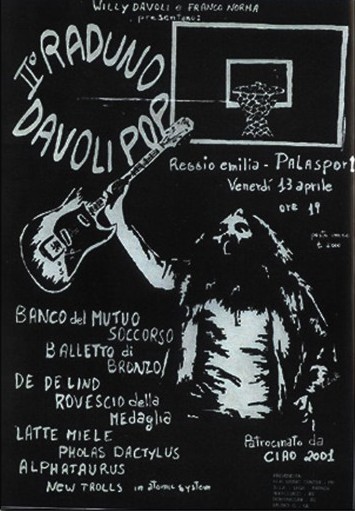 WILLY DAVOLI e FRANCO NORMA
presentano:
II° RADUNO
DAVOLI POP
Reggio emilia - PALASPORT
Venerdí 13 aprile
ore 19
BANCO del MUTUO
SOCCORSO
BALLETTO di
BRONZO
DE DE LIND
ROVESCIO della
MEDAGLIA
LATTE MIELE
PHOLAS DACTYLUS
ALPHATAURUS
NEW TROLLS in atomic system
Patrocinato da
CIAO 2001